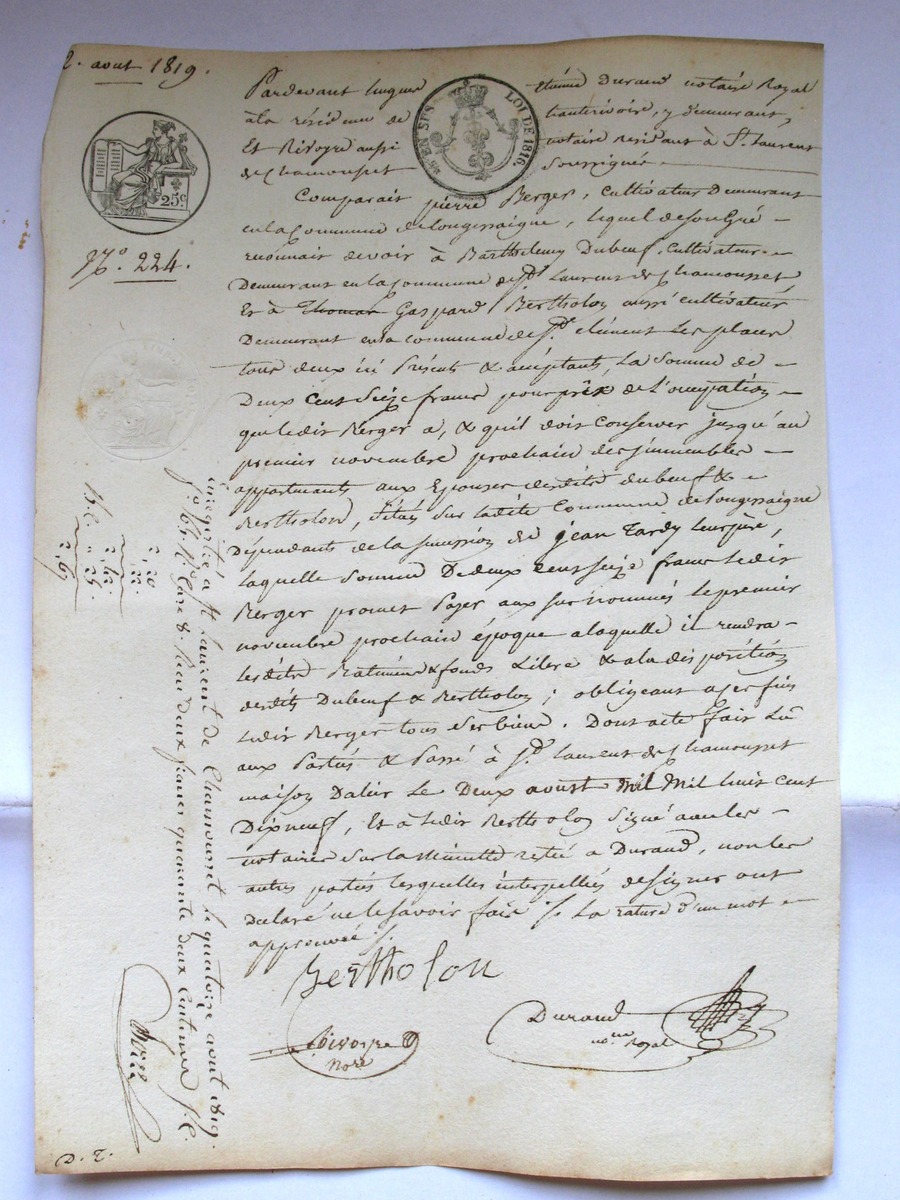 2. aout 1819.
Pardevant Etienne Durand notaire Royal
à la résidence de hauterivoire, y demeurant,
Et Rivoyre aussi notaire residant à St. Laurent
de Chamousset Soussigné
EN SUS LOI DE 1816
25c
No. 224.
Comparait pierre Berger, cultivateur Demeurant
en la Commune de Longessaigne, lequel de Son Gré
reconnait devoir à Barthelemy Dubeuf, cultivateur
Demeurant en la Commune de St. Laurent de Chamousset
Et à Thomas Gaspard Bertholon aussi cultivateur
Demeurant en la commune de St. clément Les places
tous deux ici Présents & acceptants, La Somme de
Deux Cent Seize francs pour prix de l'occupation
que ledit Berger a, & qu'il doit Conserver jusqu'au
premier novembre prochain des jmmeubles
appartenants aux Epouses desdits dubeuf &
Bertholon, Situés Sur ladite Commune de Longessaigne
Dépendants de la succession de jean Tardy leur père,
laquelle Somme De deux cent Seize francs ledit
Berger promet Payer aux sus nommés le premier
novembre prochain époque a laquelle il rendra
lesdits Batiments & fonds Libre & a la disposition
desdits Dubeuf & Bertholon; obligeant a ses fins
Ledit Berger tous Ses biens. Dont acte fait Lû
aux Parties & Passé à St. Laurent de Chamousset
maison Dalier Le Deux aoust Mil Mil huit Cent
Dixneuf, Et à Ledit Bertholon Signé avec les
notaires Sur la Minutte restée a Durand, non les
autres parties lesquelles interpellées de signer ont
déclaré ne le savoir faire ./. La rature d'un mot
approuvée ./.
Bertholon
Rivoyre
Nore
Durand
nore Royal
Enregistré à St Laurent de Chamousset le quatorze aout 1819.
fo. 66 Ro. Care 8. Recu deux francs quarante deux Centimes S. C.
2, 20
22
2, 42
" 25
2, 67
D. T.